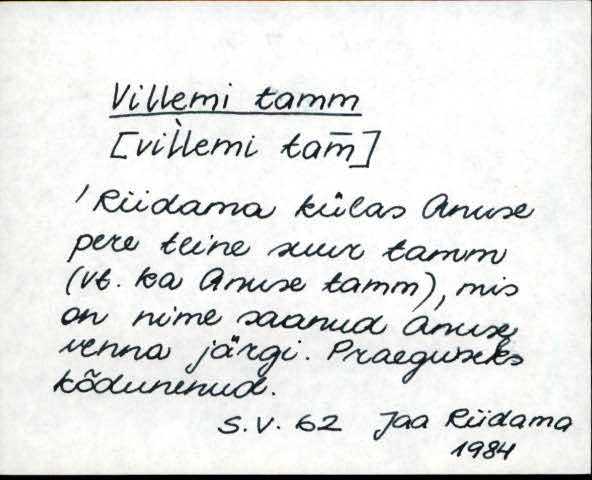 Villemi tamm
[vìl̀lemi tam̅]
' Riidama külas Anuse
pere teine suur tamm
(vt. ka Anuse tamm), mis
on nime saanud Anuse
venna järgi. Praeguseks
kõdunenud.
S.V. 62 Jaa Riidama
1984